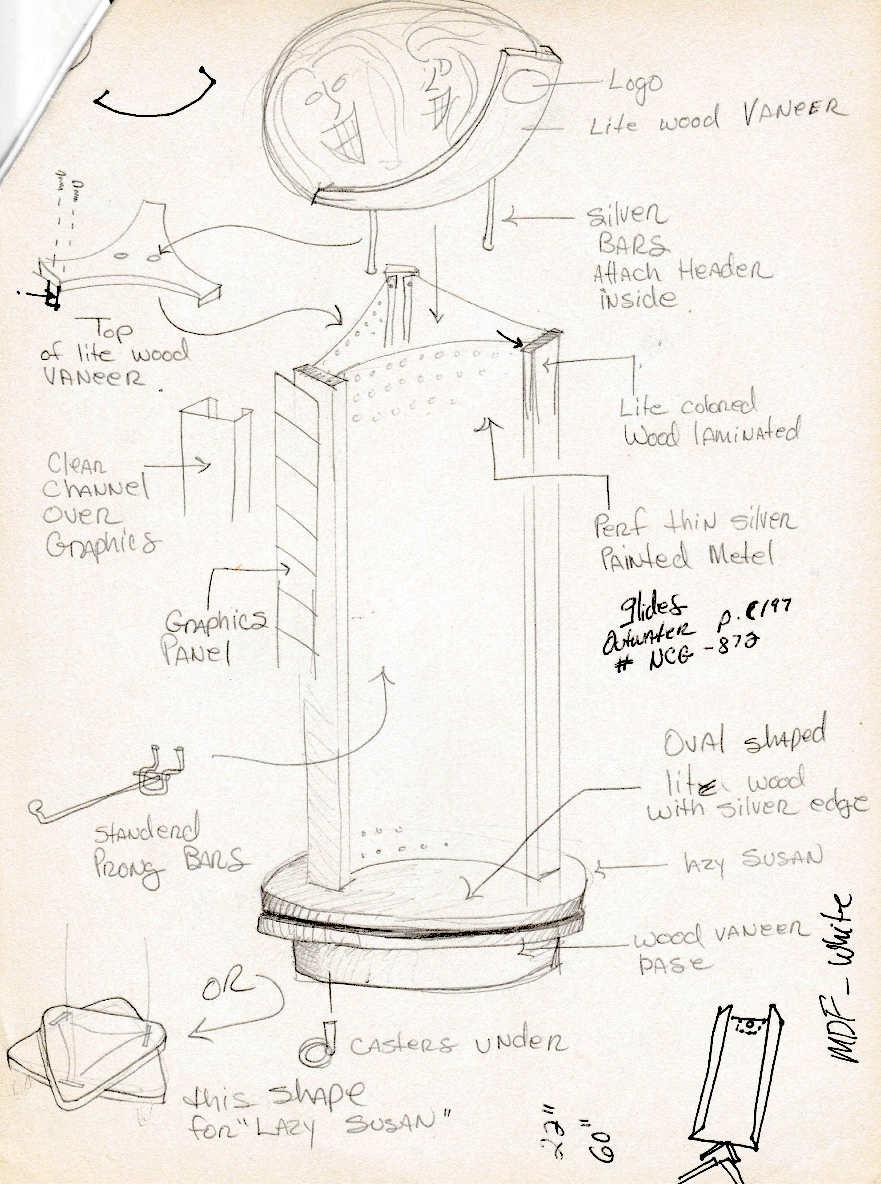 Logo
Lite wood VANEER
Silver
BARS
Attach Header
inside.
Top
of lite wood
VANEER.
Lite colored
Wood laminated
Clear
Channel
over
Graphics
Perf thin silver
Painted Metel
Graphics
Panel
glides
Outwater p. C197
# NCG - 872
Oval shaped
lite wood
with silver edge
Standerd
Prong Bars
lazy Susan
wood VANEER
base
MDF - White
OR
casters under
this shape
for "Lazy Susan"
22"
60"